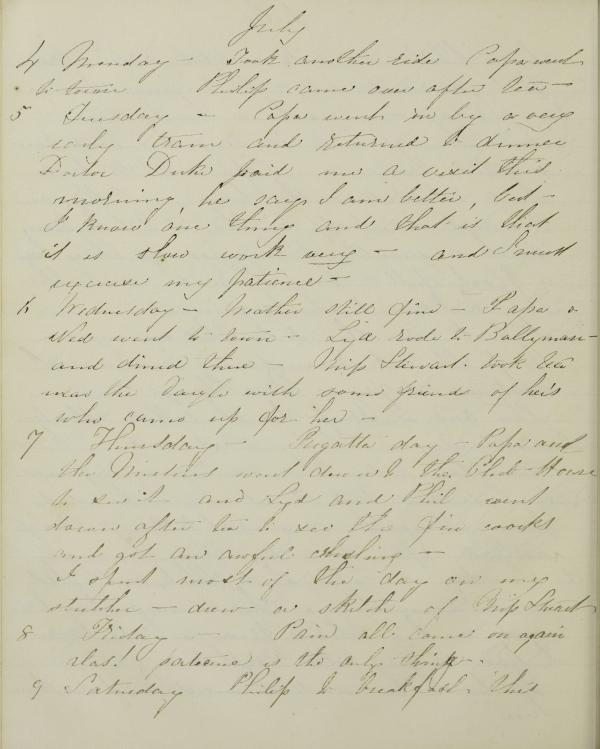 July
4 Monday - Took another ride Papa went
to town Philip came over after tea -
5 Tuesday - Papa went in by a very
early train and returned to dinner
Doctor Duke paid me a visit this
morning, he says I am better, but -
I know one thing and that is that
it is slow work very - and I must
exercise my patience -
6 Wednesday - Weather still fine - Papa &
Ned went to town - Lyd rode to Ballyman -
and dined there - Miss Stewart took tea
near the Dargle with some friends of hers
who came up for her -
7 Thursday - Regatta day - Papa and
the went down to the Club House
to see it and Lyd and Phil went
down after tea to see the fire works
and got an awful
I spent most of the day on my
stretcher - drew a sketch of Miss Stewart
8 Friday - Pain all come on again
alas! patience is the only thing -
9 Saturday Philip to breakfast this